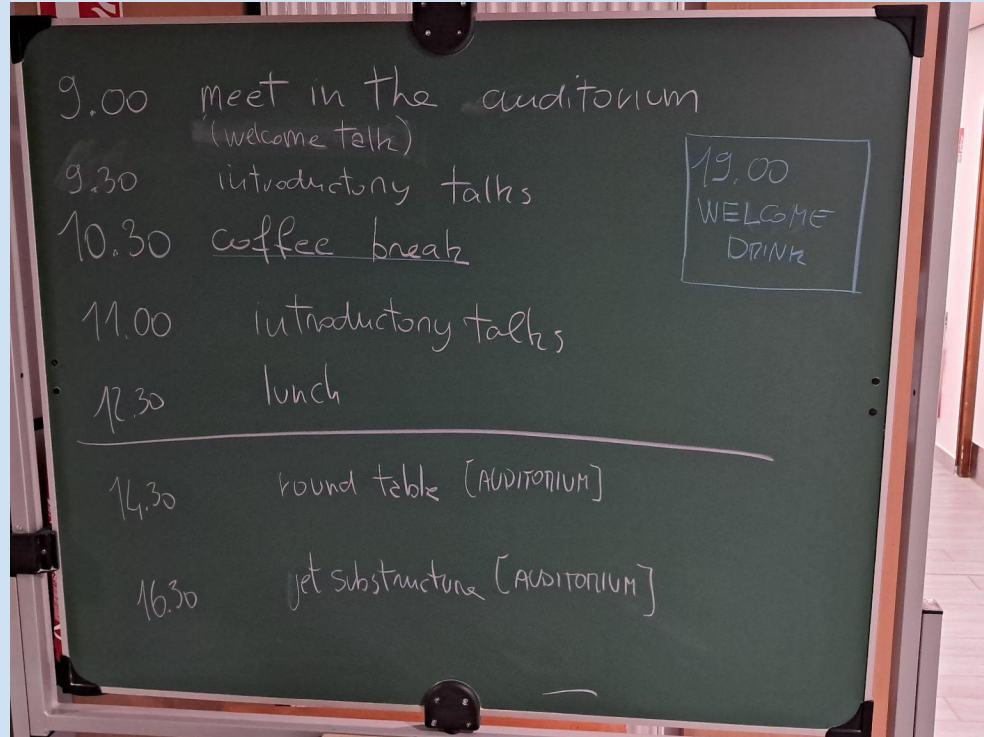 9.00 meet in the auditorium
(welcome talk)
9.30 introductory talks
10.30 coffee break
11.00 introductory talks
12.30 lunch
14.30 round table [AUDITORIUM]
16.30 jet substructure [AUDITORIUM]
19.00
WELCOME
DRINK